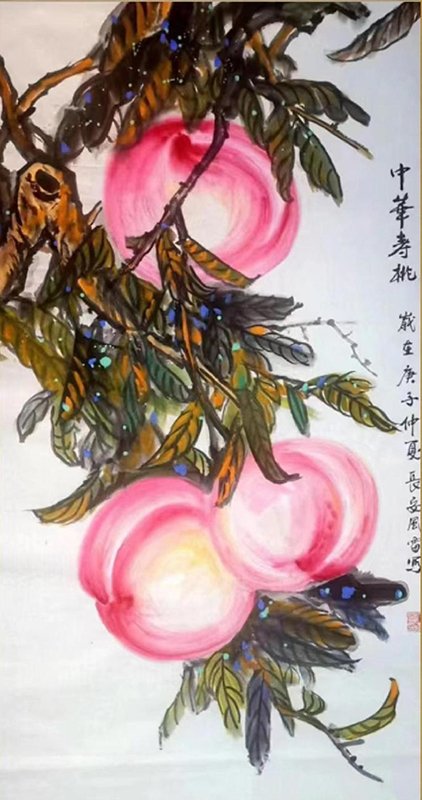 中華寿桃
歲在庚子仲夏長安風雷写